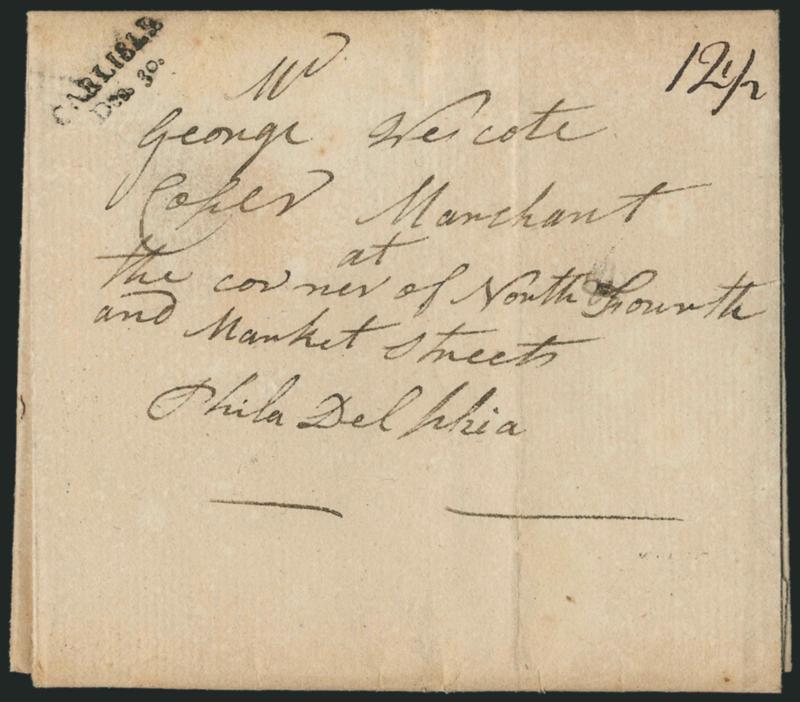 CARLISLE
Dec. 30.
12 1/2
Mr
George Wescote
Marchant
at
the corner of North Fourth
and Market Streets
PhilaDelphia